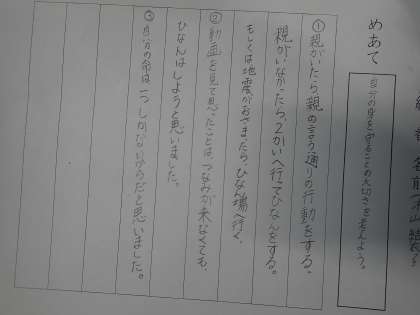 めあて
自分の身を守ることの大切さを考えよう。
① 親がいたら親の言う通りの行動をする。
親がいなかったら、2かいへ行ってひなんをする。
もしくは地震がおさまったら、ひなん場へ行く。
② 動画を見て思ったことは、つなみが来なくても、
ひなんはしようと思いました。
③ 自分の命は一つしかないからだと思いました。